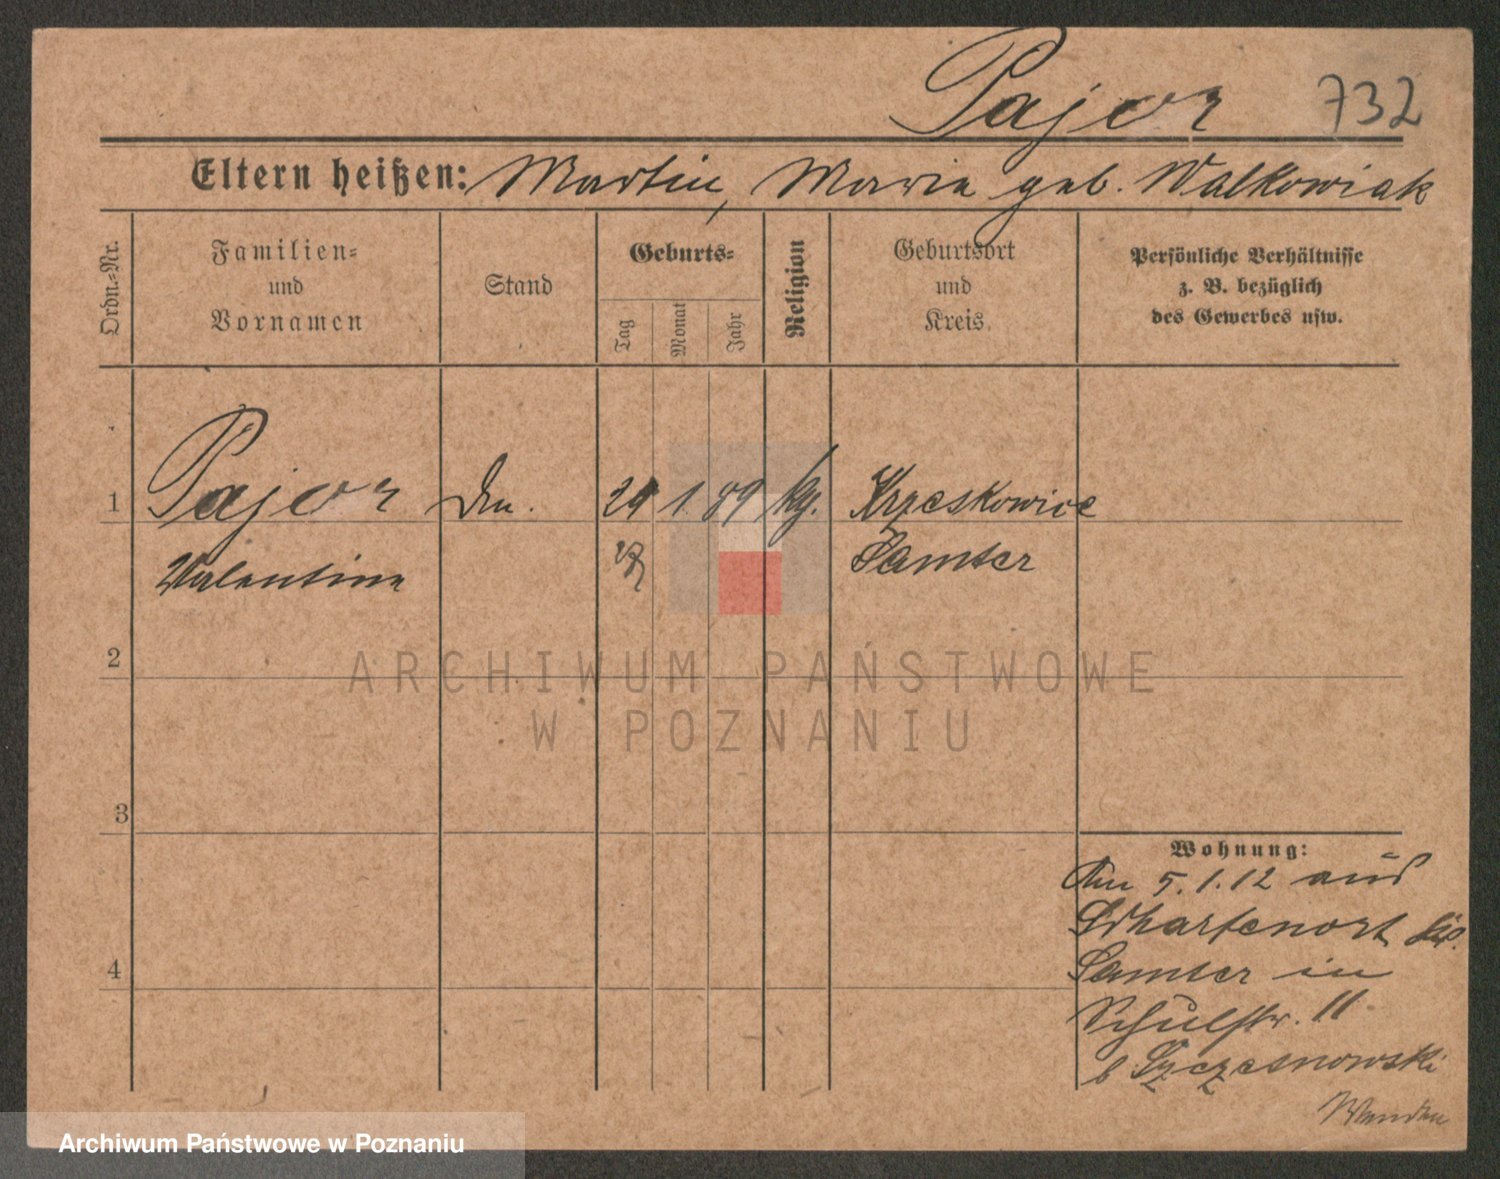 Pajor 732
Eltern heißen: Martin, Maria geb. Walkowiak
Ordn.-Nr.
Familien-
und
Vornamen
Stand
Geburts-
Tag
Monat
Jahr
Religion
Geburtsort
und
Kreis.
Persönliche Verhältnisse
z. B. bezüglich
des Gewerbes usw.
1 Pajor 1. 89 Krzeskowice
Valentina Samter
2
ARCHIWUM PAŃSTWOWE
W POZNANIU
3
Wohnung:
Am 5.1.12 aus
Scharfenort
4
Samter in
Schulstr. 11
b Szczesnowski
Archiwum Państwowe w Poznaniu